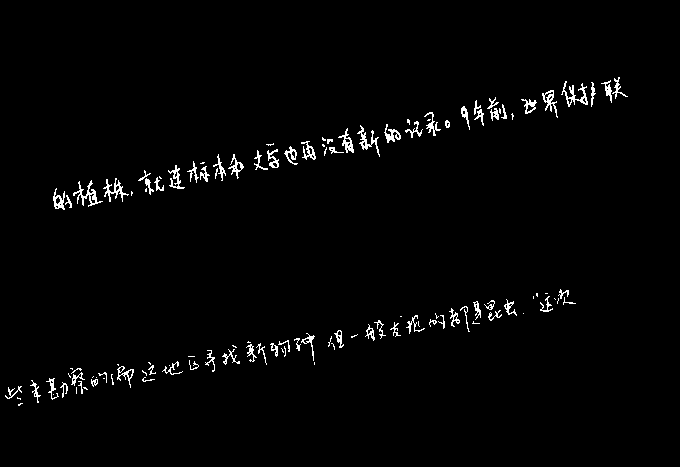 的植株，就连标本和文字也再没有新的记录。9年前，世界保护联
些未勘察的偏远地区寻找新物种 但一般发现的都是昆虫．“这次